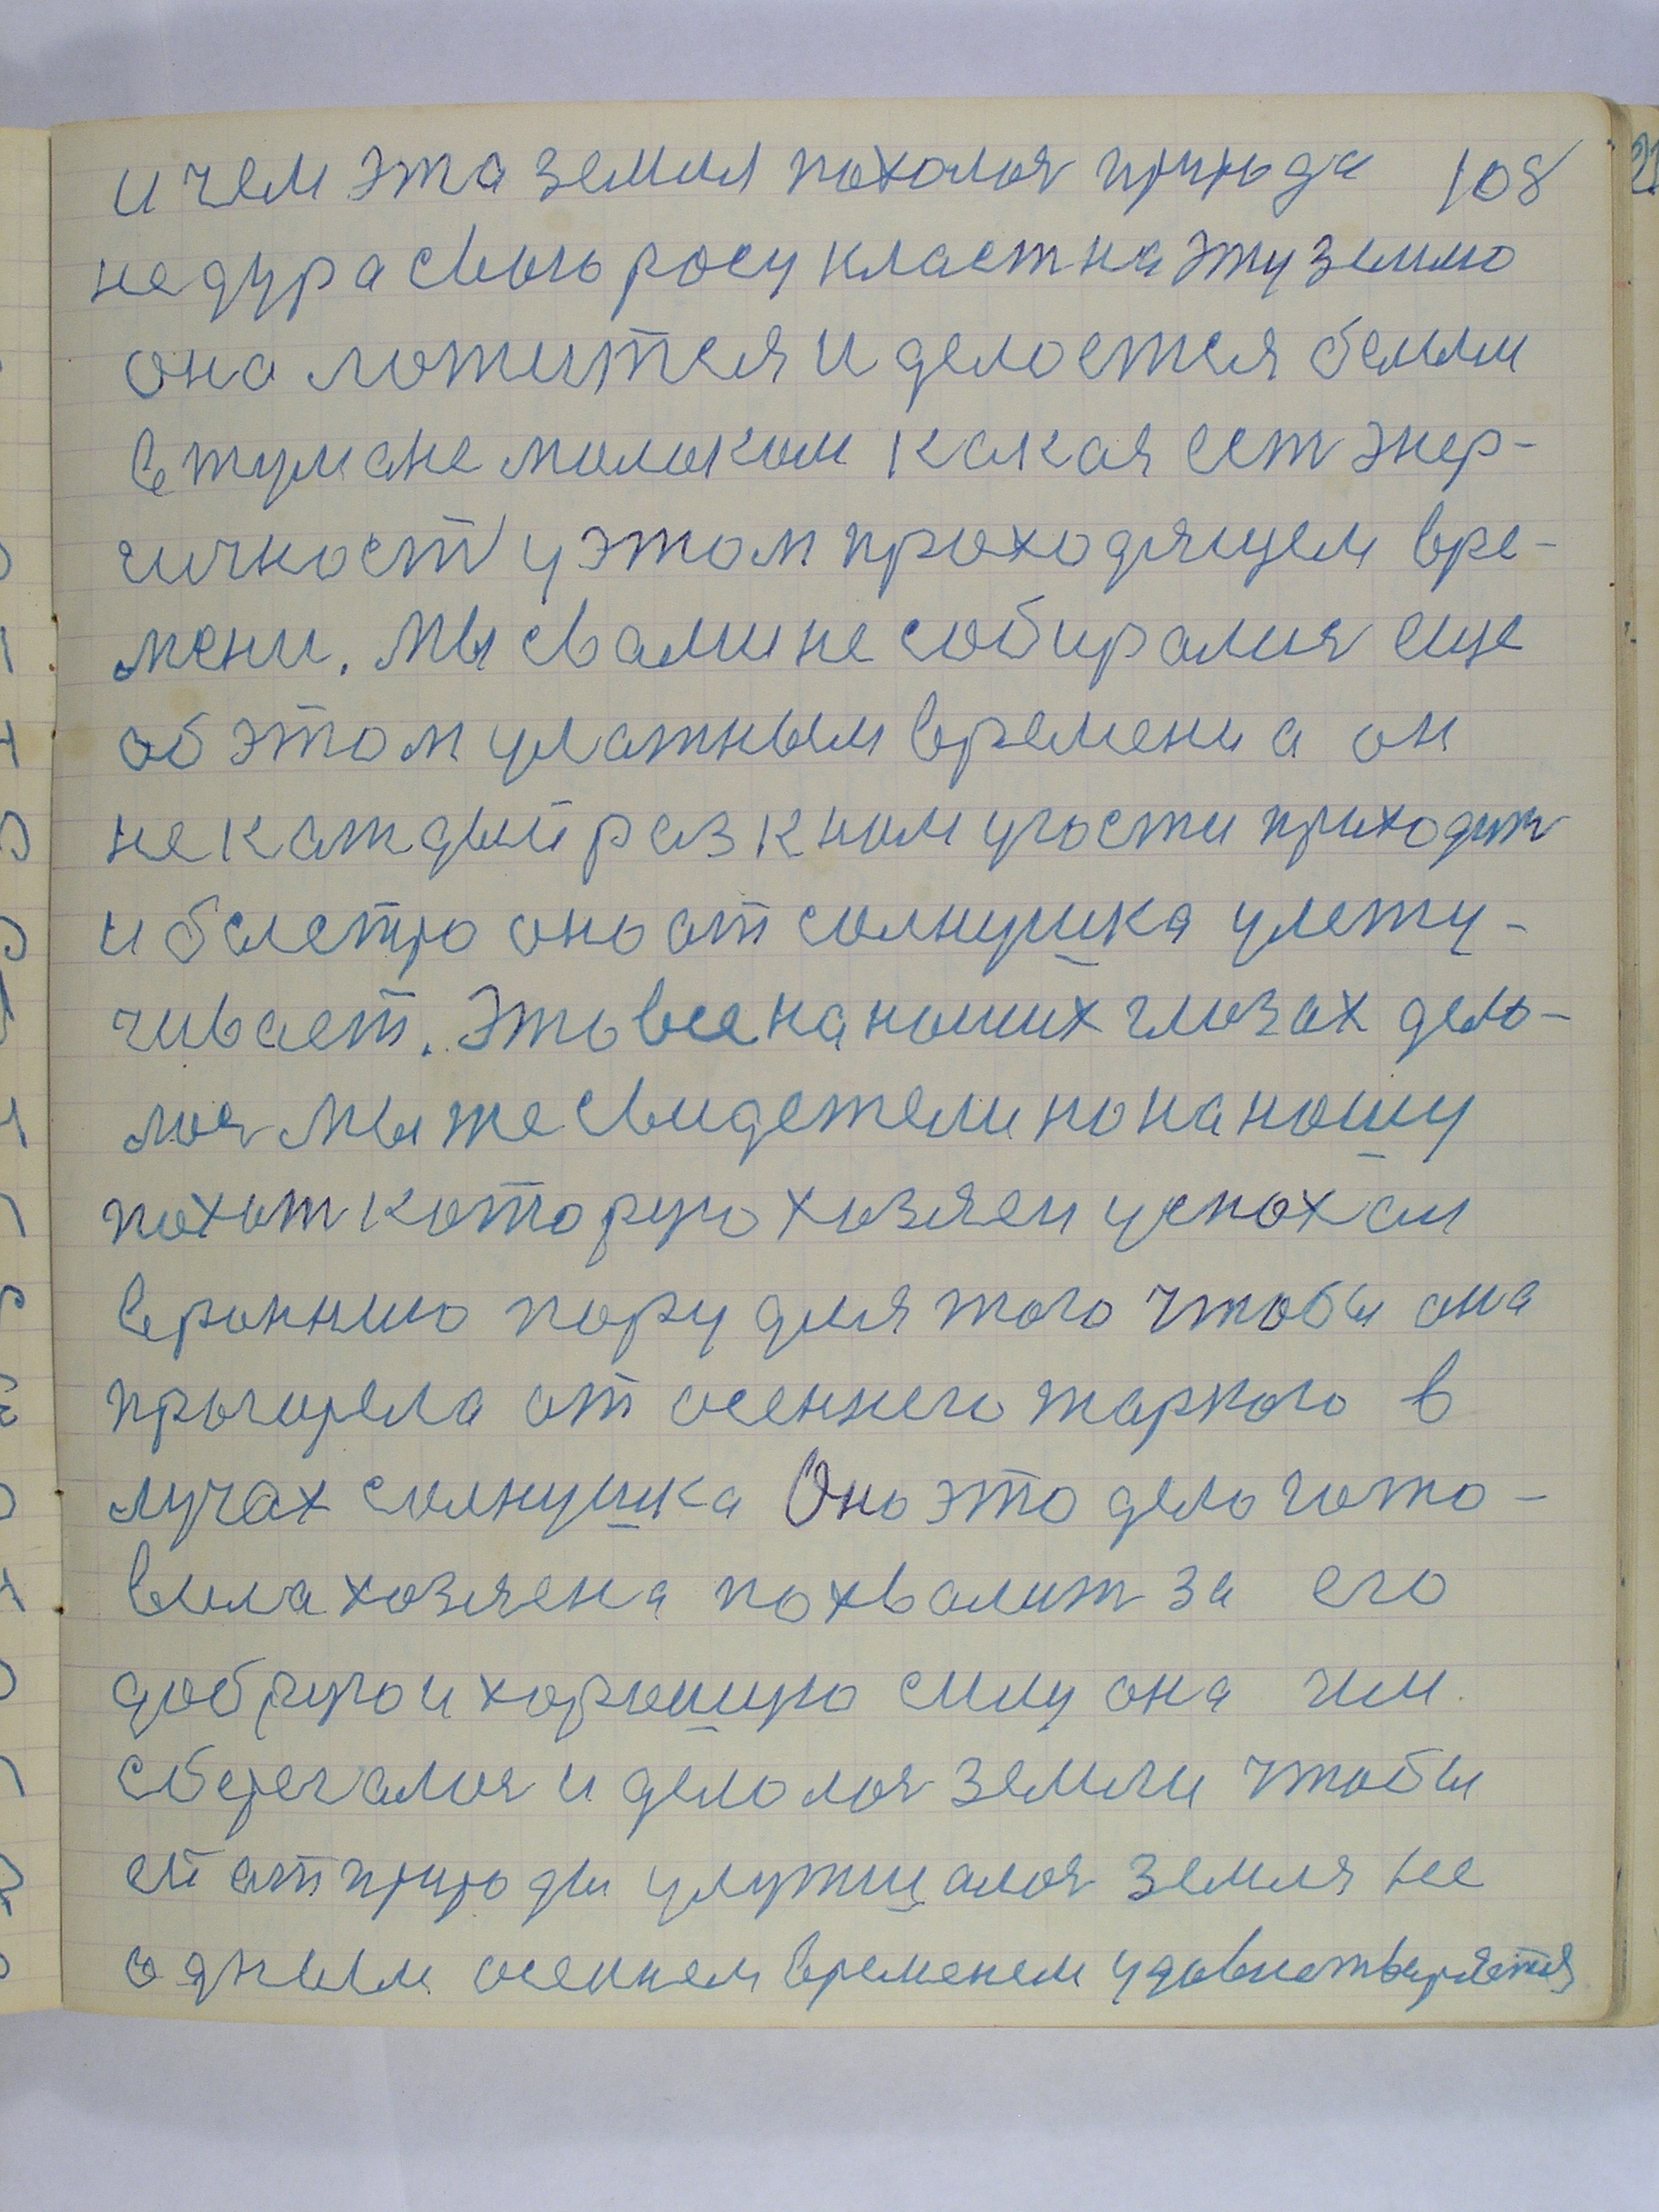 и чем эта земля пахалася природа 108
не дура свою росу класт на эту землю
она ложится и делается белым
в тумане молоком какая ест энер-
гичност у этом проходящем вре-
мени. Мы свами не собиралися еще
об этом улажным времени а он
не каждый раз к нам угости приходит
и быстро оно от солнушка улету-
чивает. Это все на наших глазах дела-
лося Мы же свидетели но на нашу
пахот которую хозяен успохал
в роннию пору для того чтобы она
прогорела от осеннего жаркого в
лучах солнушка Оно это дело гото-
вила хозяена похвалит за его
добрую и хорошую силу она чим
сберегалося и делолося земли чтобы
ей от природы улутшалося земля не
одным осеннем временем удовлетворяется